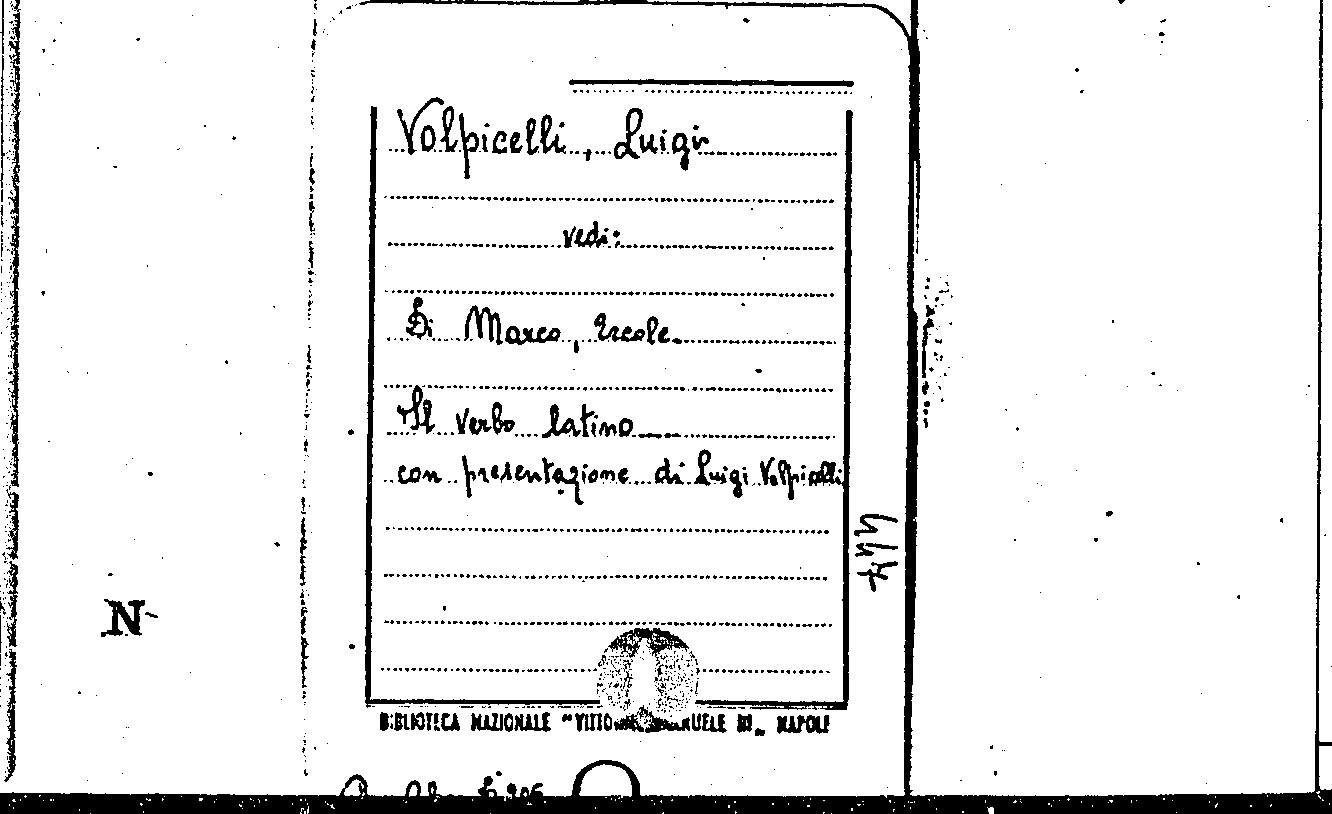 Volpicelli, Luigi
vedi:
Di Marco, Ercole.
Il verbo latino....
con presentazione di Luigi Volpicelli
N
BIBLIOTECA NAZIONALE "VITTORIO EMANUELE III" NAPOLI